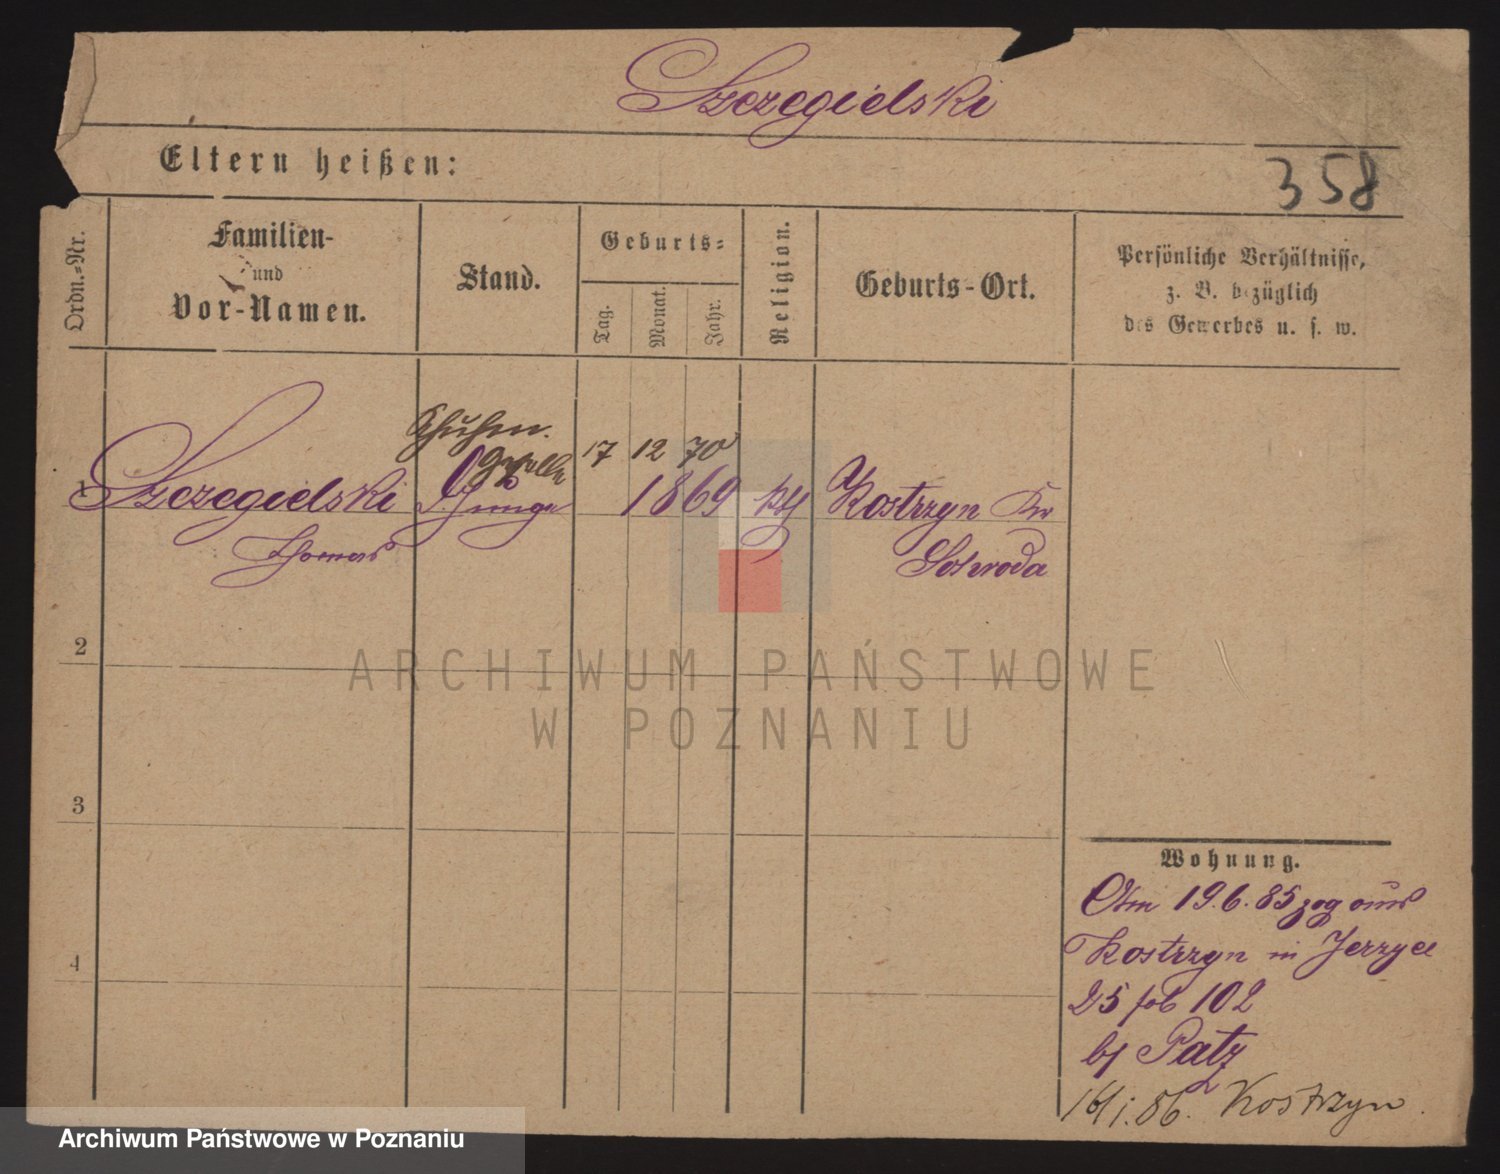 Szczegielski
Eltern heißen:
358
Ordn.=Nr.
Familien-
und
Vor-Namen.
Stand.
Geburts=
Tag.
Monat.
Jahr.
Religion.
Geburts-Ort.
Persönliche Verhältnisse,
z. B. bezüglich
des Gewerbes u. s. w.
Schuhm.
Geselle
17 12 70
1
Szczegielski
Junge
1869
kth
Kostrzyn Kr
Thomas
Schroda
2
ARCHIWUM PAŃSTWOWE
W POZNANIU
3
Wohnung.
Am 19.6.85 zog aus
Kostrzyn in Jerzyce
4
25 102
bj Patz
86. Kostrzyn.
Archiwum Państwowe w Poznaniu